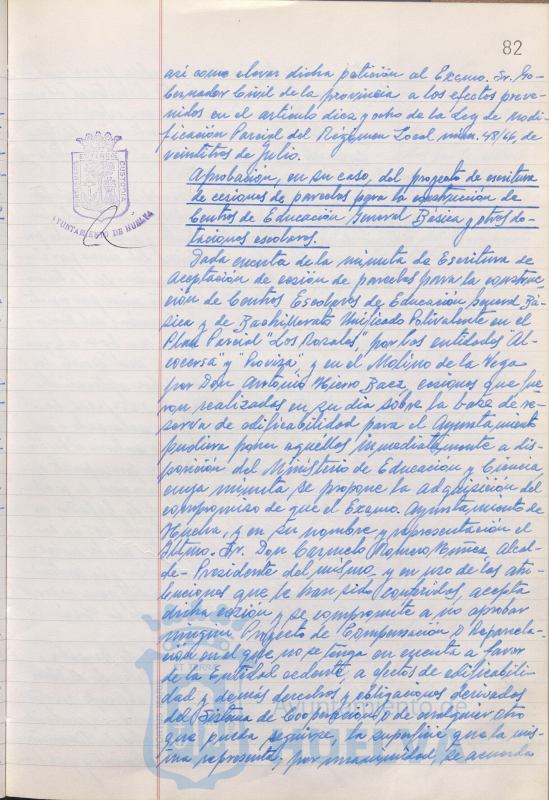 82
así como elevar dicha petición al Excmo. Sr. Go-
bernador Civil de la provincia a los efectos preve-
nidos en el artículo diez y ocho de la Ley de modi-
ficación Parcial del Régimen Local núm. 48/66, de
veintitrés de Julio.
Aprobación, en su caso, del proyecto de escritura
de cesiones de parcelas para la construcción de
Centros de Educación General Básica y otras do-
taciones escolares.
Dada cuenta de la minuta de Escritura de
aceptación de cesión de parcelas para la construc-
ción de Centros Escolares de Educación General Bá-
sica y de Bachillerato Unificado Polivalente en el
Plan Parcial "Los Rosales", por las entidades "Al-
cocersa" y "Proviza", y en el Molino de la Vega
por Don Antonio Hierro Baez, cesiones que fue-
ron realizadas en su día sobre la base de re-
serva de edificabilidad para el Ayuntamiento
pudiera poner aquellos inmediatamente a dis-
posición del Ministerio de Educación y Ciencia
cuya minuta se propone la adquisición del
compromiso de que el Excmo. Ayuntamiento de
Huelva, y en su nombre y representación el
Iltmo. Sr. Don Carmelo Romero Núñez, Alcal-
de-Presidente del mismo, y en uso de las atri-
buciones que le han sido conferidas, acepta
dicha cesión y se compromete a no aprobar
ningún Proyecto de Compensación o Reparcela-
ción en el que no se tenga en cuenta a favor
de la Entidad cedente, a efectos de edificabili-
dad y demás derechos y obligaciones derivados
del Sistema de Cooperación o de cualquier otro
que pueda seguirse, la superficie que la mis-
ma representa; por unanimidad, se acuerda
AYUNTAMIENTO DE HUELVA
Ayuntamiento de
HUELVA